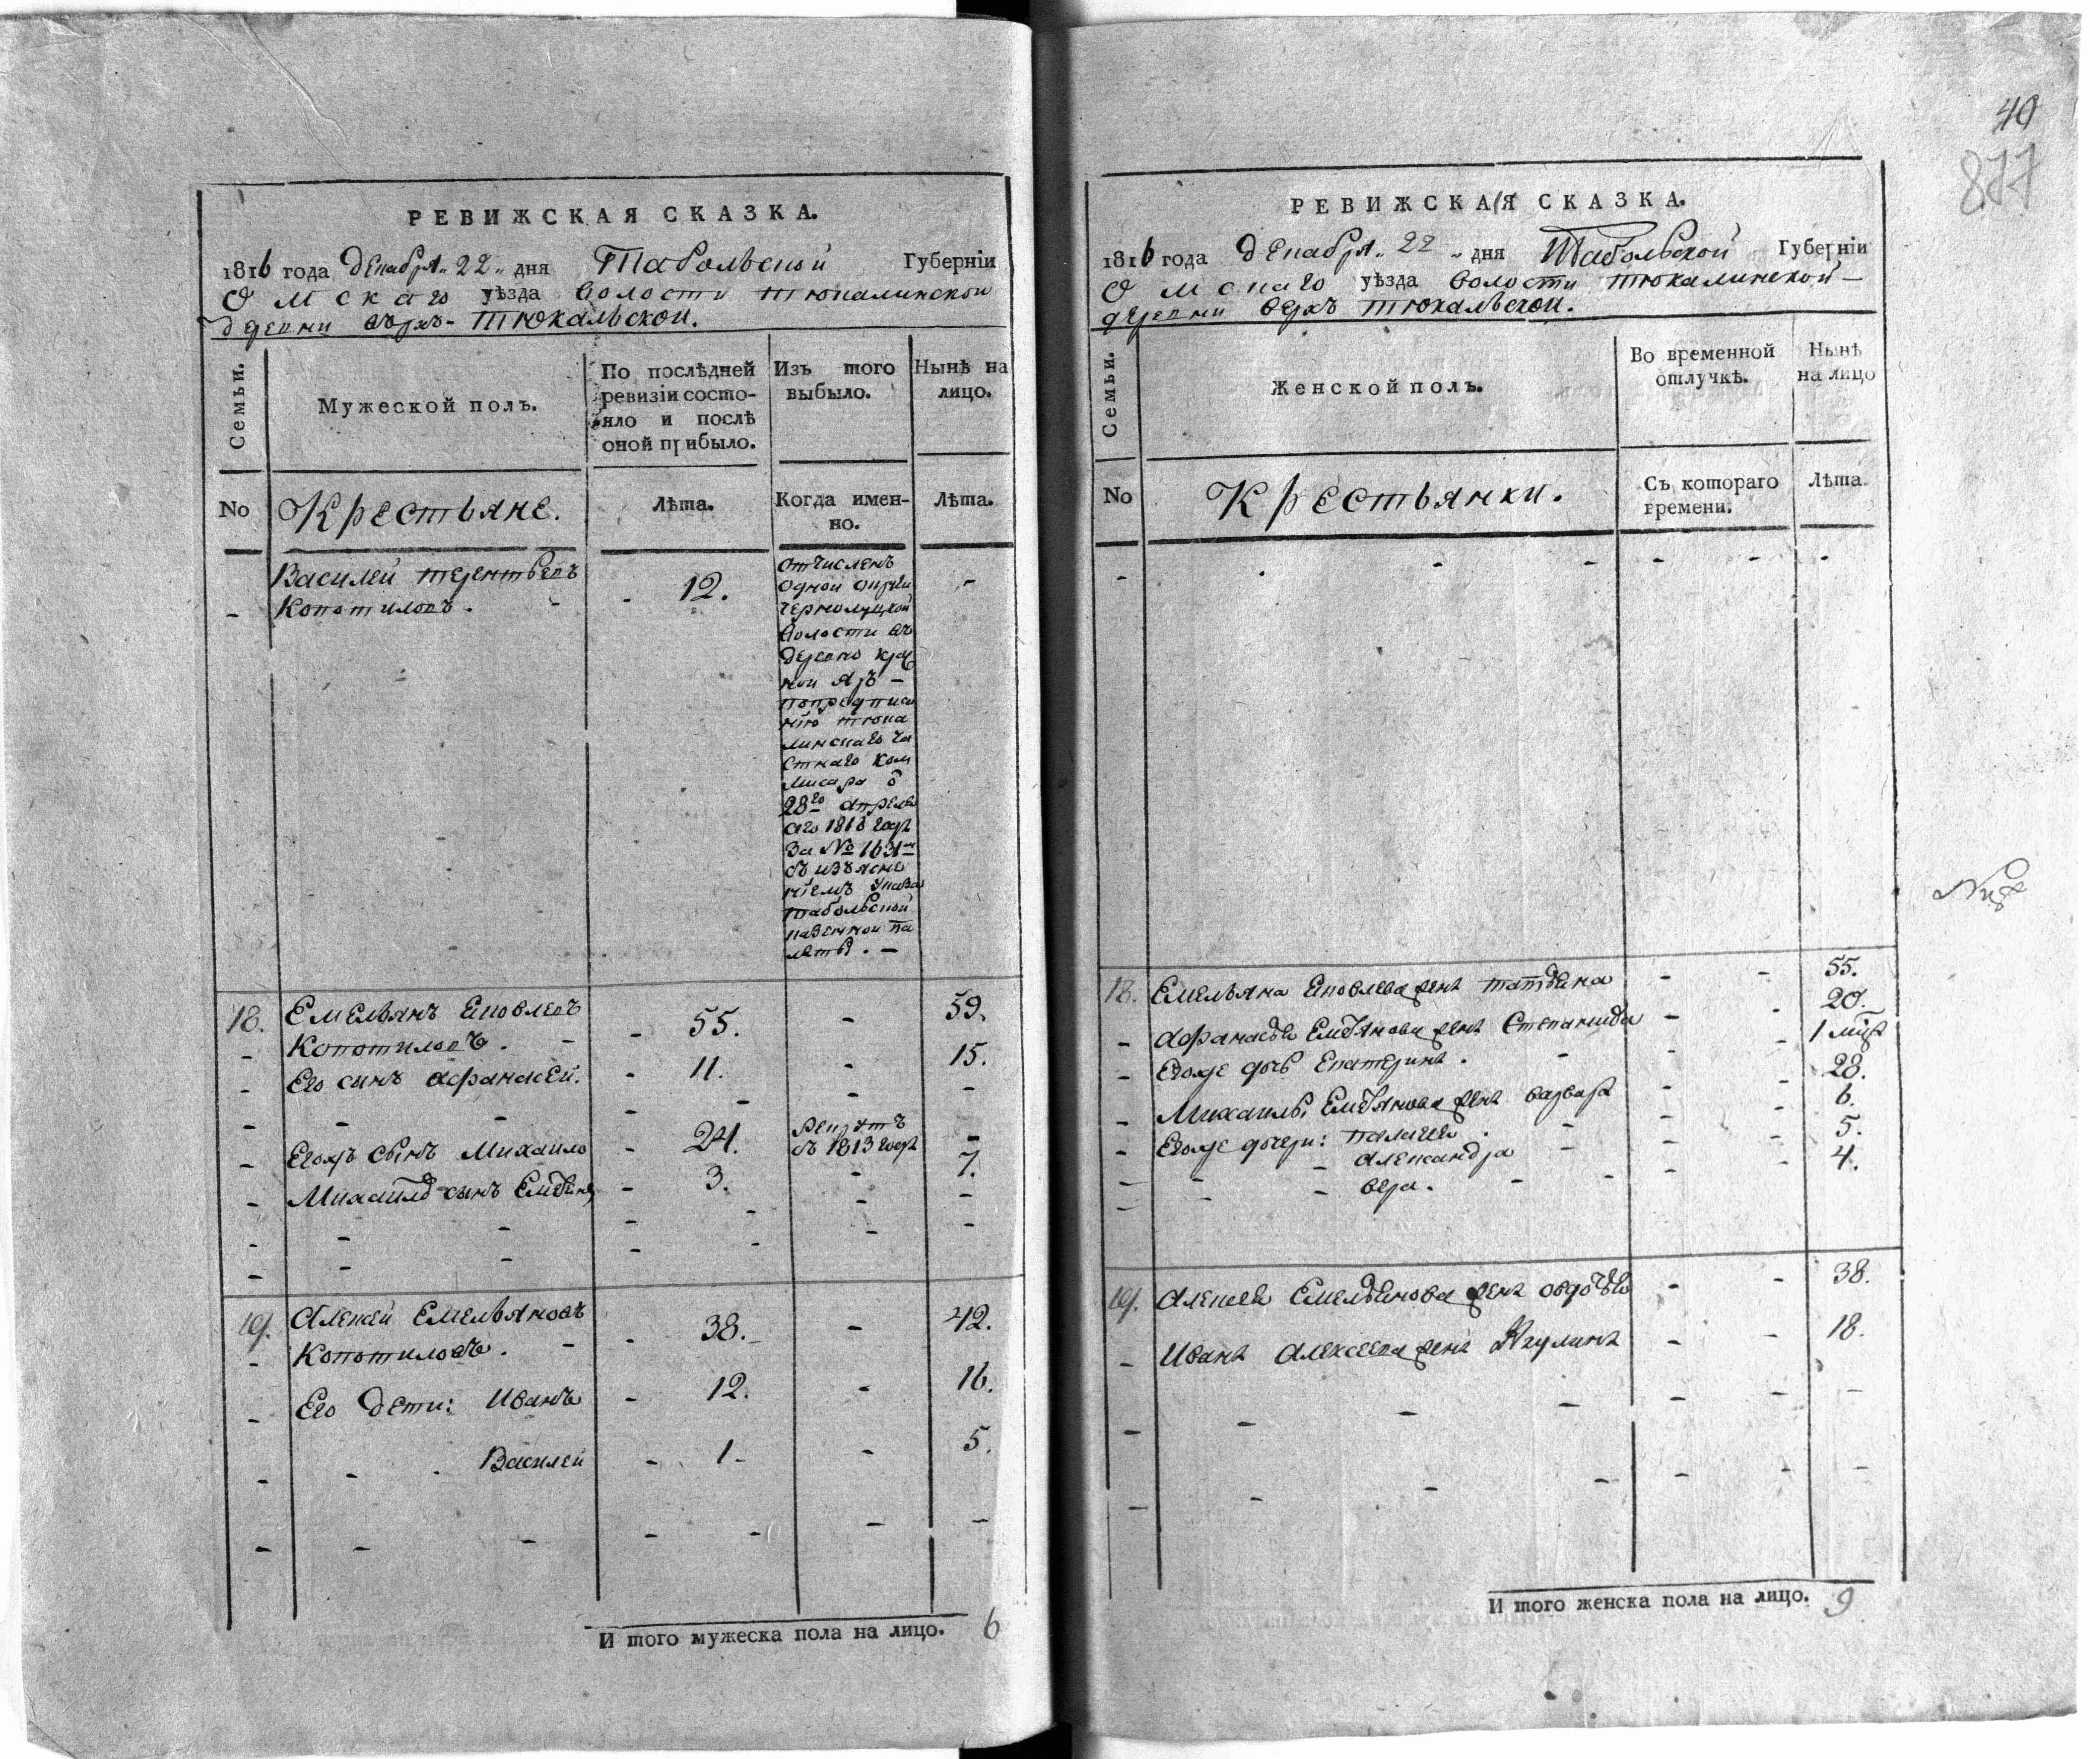 РЕВИЖСКАЯ СКАЗКА.
1816 года декабря „22„ дня Табольской Губерніи
Омскаго уѣзда волости тюкалинской
деревни верхъ-тюкальской.
Семьи.
Мужеской полъ.
По послѣдней ревизіи состо-
яло и послѣ
оной прибыло.
Изъ того
выбыло.
Нынѣ на
лицо.
No
Крестьяне.
Лѣта.
Когда имен-
но.
Лѣта.
Василей терентьевъ
Копотиловъ.
12.
отчисленъ
одной
чернолуцкой
волости въ
деревню кра
ной яръ -
попредписа
нію тюка
линскаго ча
стнаго ком
мисара
28го апреля
1816 года
За № 1631м
съ изъясне
ніемъ указа
табольской
казенной па
латы. -
18. Емельянъ Яковлевъ
Копотиловъ. 55. - 59.
Его сынъ Афанасей. 11. - 15.
Егожъ сынъ Михайло 24. рекрутъ
въ 1813 году -
Михайлы сынъ 3. - 7.
19. Алексей Емельяновъ
Копотиловъ. 38. - 42.
Его дети: Иванъ 12. - 16.
Василей 1. - 5.
И того мужеска пола на лицо. 6
40
877
РЕВИЖСКАЯ СКАЗКА.
1816 года декабря „22„ дня Табольской Губерніи
Омскаго уѣзда волости тюкалинской
деревни верхъ тюкальской.
Семьи.
Женской полъ.
Во временной
отлучкѣ.
Нынѣ
на лицо
No
Крестьянки.
Съ котораго
времени.
Лѣта.
18. Емельяна Яковлева жена татьяна 55.
Афанасья Емельянова жена Степанида 20.
Егоже дочь Екатерина. 1 
Михаилы Емельянова жена варвара 28.
Егоже дочери: палагея 6.
Александра 5.
вера. 4.
19. Алексея Емельянова жена овдотья 38.
Ивана Алексеева жена Акулина 18.
И того женска пола на лицо. 9